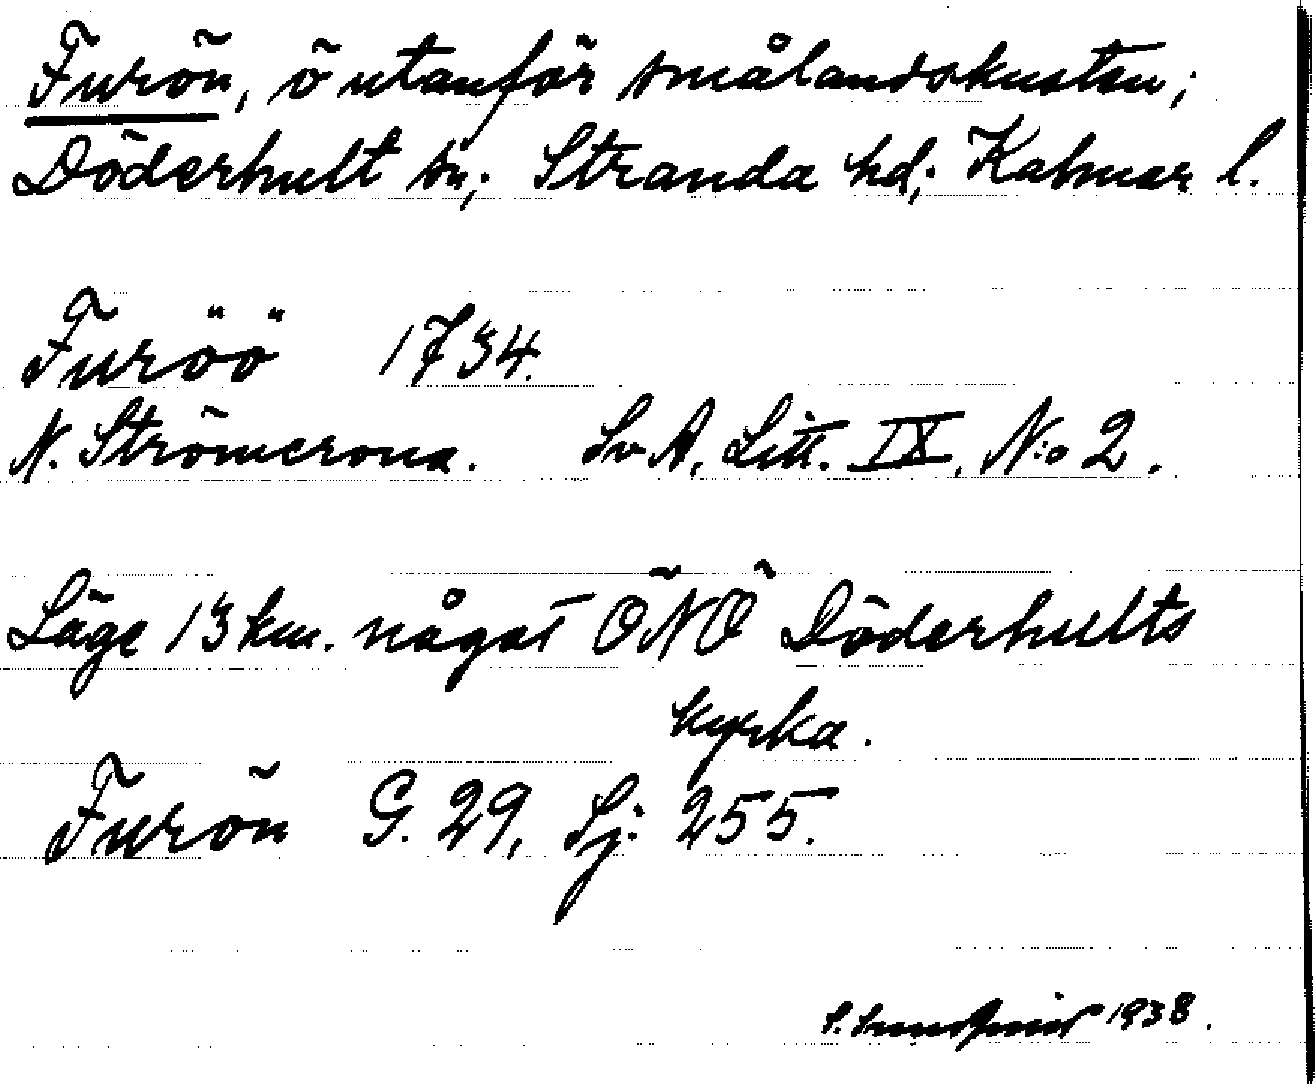 Furön, ö utanför smålandskusten;
Döderhult sn; Stranda hd; Kalmar l.
Furöö 1734.
N. Strömcrona. Sv A, Litt. IX, N:o 2.
Läge 13 km. något ÖNÖ Döderhults
kyrka.
Furön G. 29, Sj: 255.
1938.